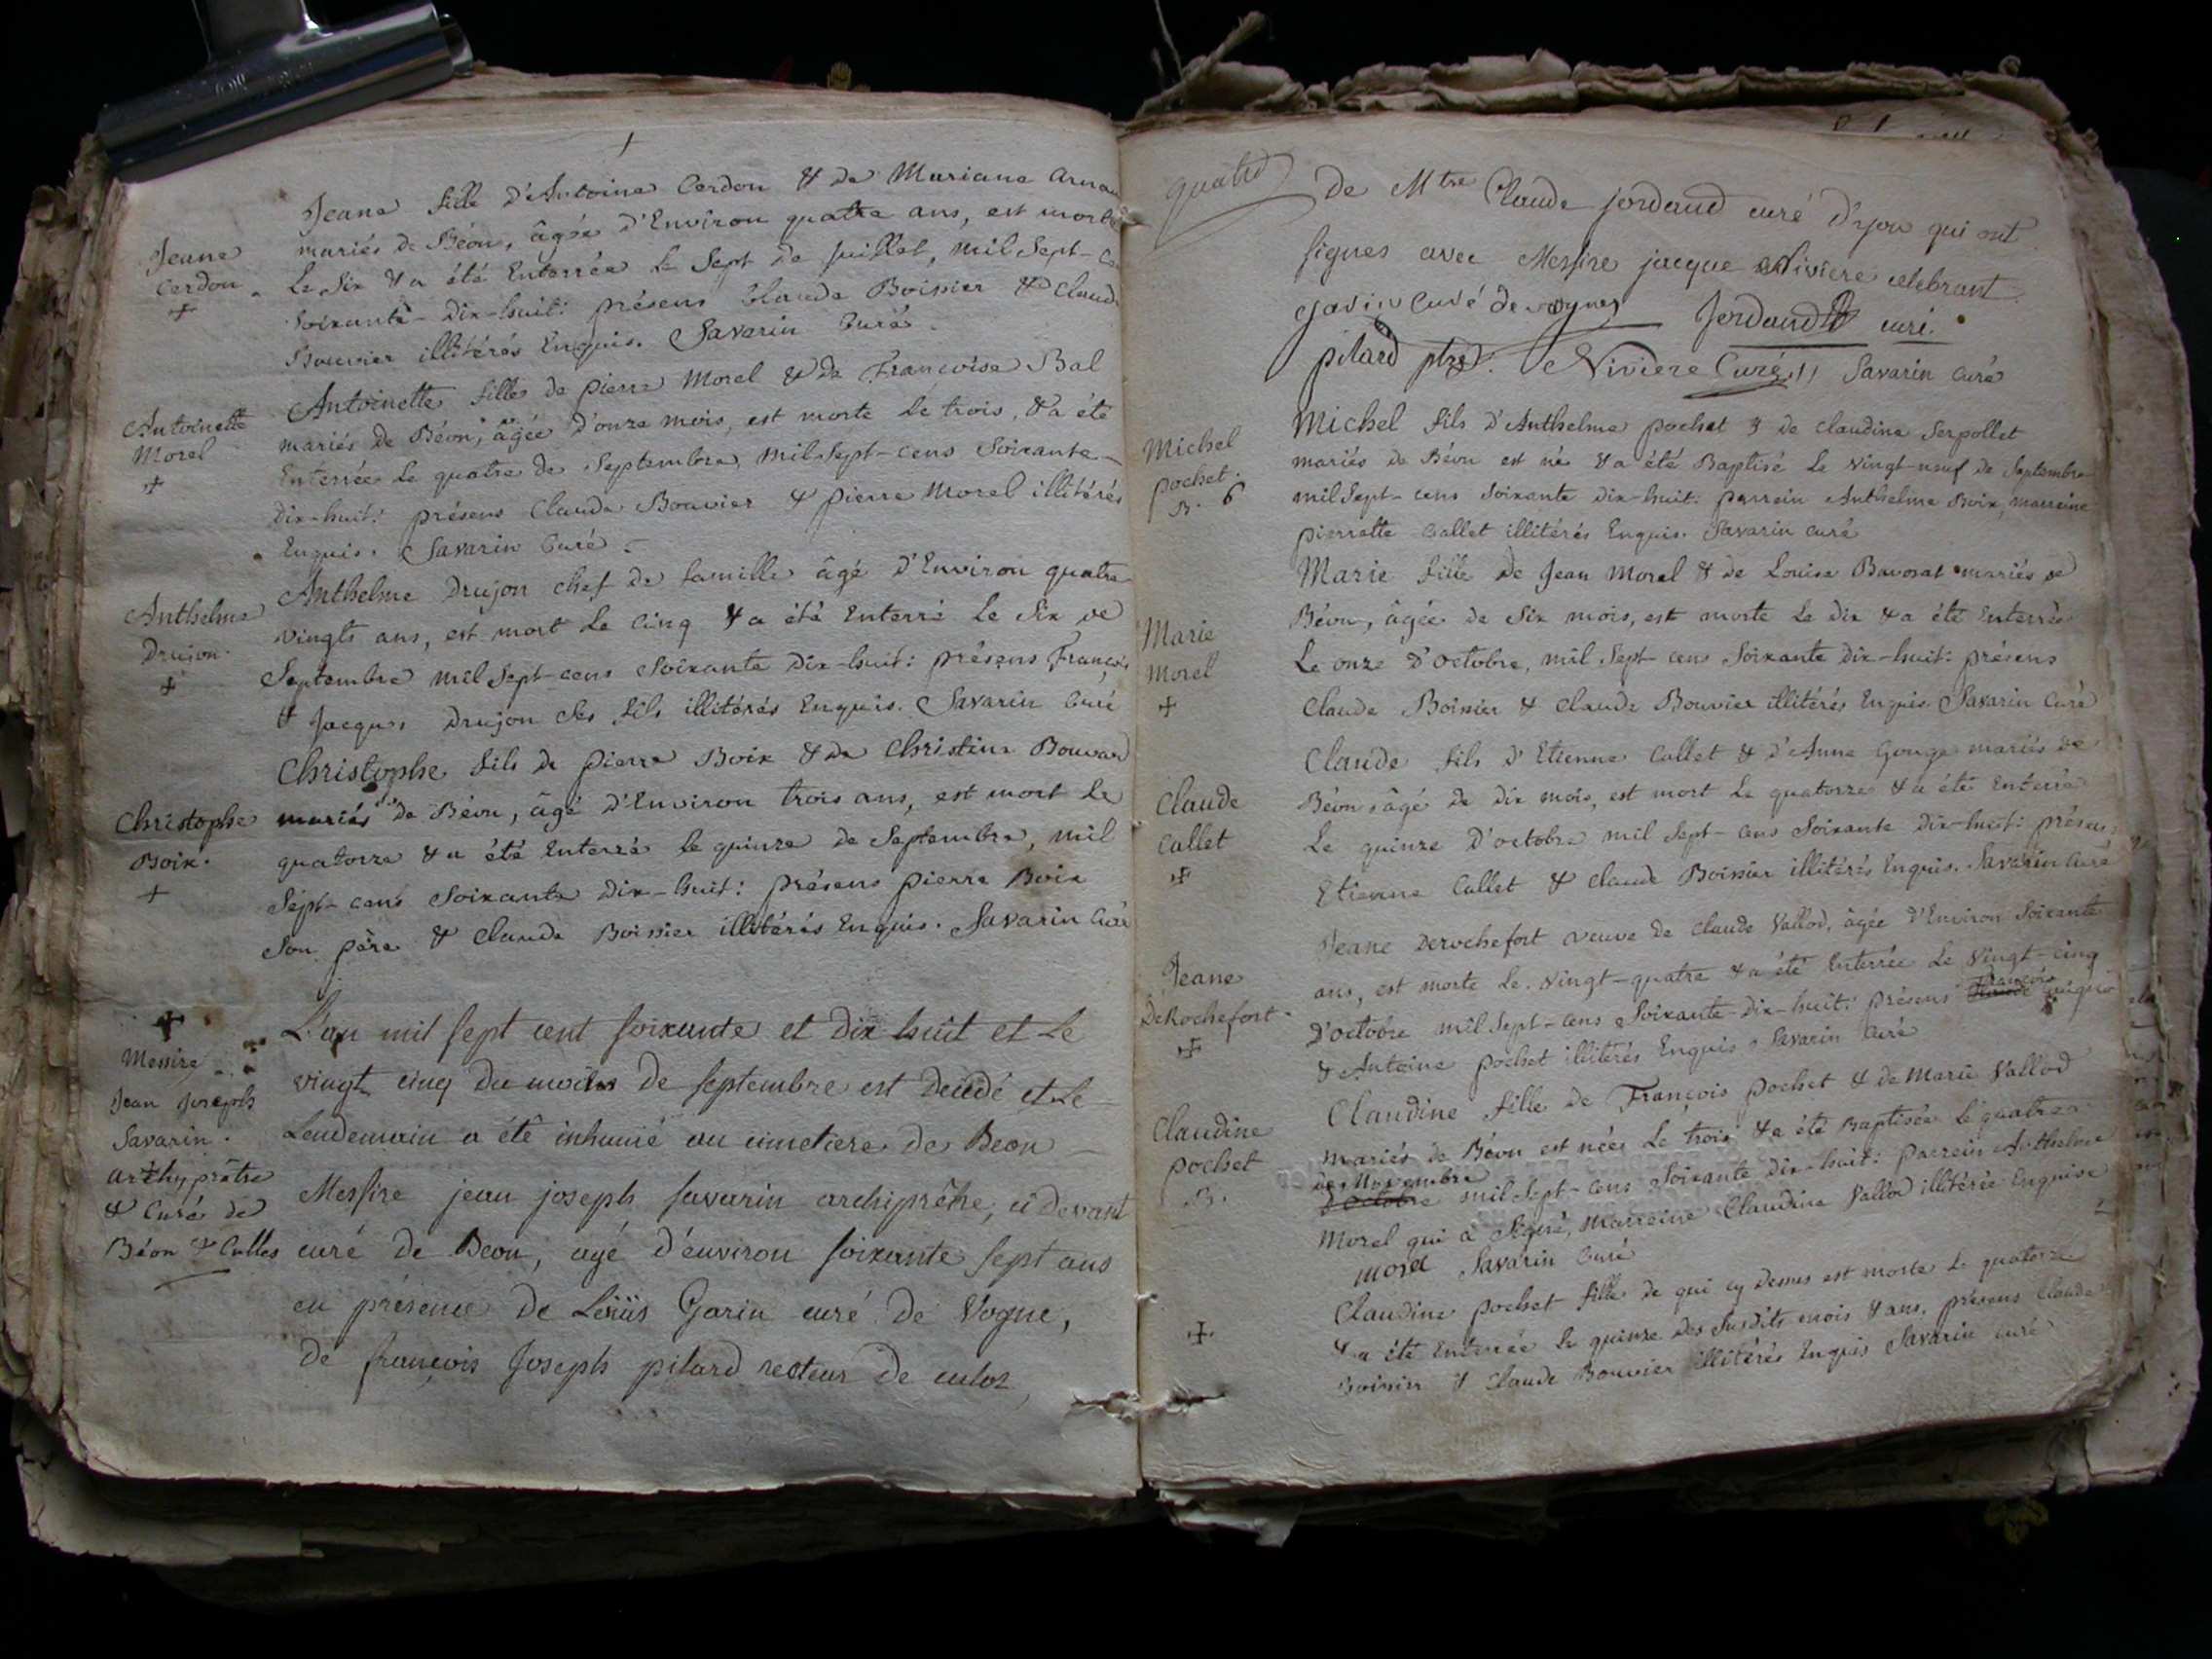 Jeane
Cerdon
+
Jeane fille d'Antoine Cerdon & de Mariane
mariés de Béon, âgée d'Environ quatre ans, est morte
Le Six & a été Enterrée Le Sept de Juillet, mil Sept-
Soixante-Dix-huit: présens Claude Boissier & Claude
Bouvier illitérés Enquis. Savarin Curé
Antoinette
Morel
+
Antoinette fille de pierre Morel & de Françoise Bal
mariés de Béon, âgée d'onze mois, est morte le trois, & a été
Enterrée Le quatre de Septembre, mil Sept-cens Soixante-
Dix-huit: présens Claude Bouvier & pierre Morel illitérés
Enquis. Savarin Curé
Anthelme
Drujon.
+
Anthelme Drujon chef de famille âgé d'Environ quatre
vingts ans, est mort Le Cinq & a été Enterré Le Six de
Septembre mil Sept-cens Soixante Dix-huit: présens François
& Jacques Drujon Ses fils illitérés Enquis. Savarin Curé
Christophe
Boix.
+
Christophe fils de pierre Boix & de Christine Bouvard
mariés de Béon, âgé d'Environ trois ans, est mort Le
quatorze & a été Enterré le quinze de Septembre, mil
Sept-cens Soixante Dix-huit: présens pierre Boix
Son père & Claude Boissier illitérés Enquis. Savarin Curé
+
Messire
Jean Joseph
Savarin.
archyprêtre
& Curé de
Béon & Culles
L'an mil sept cent soixante et dix huit et Le
vingt cinq du mois de septembre est decedé et Le
Lendemain a été inhumé au cimetiere de Beon
Messire jean joseph savarin archiprêtre, ci devant
curé de Beon, agé d'environ soixante sept ans
en présence de Loüis Garin curé de Vogne,
de françois Joseph pitard recteur de culoz
quatre
de Mtre Claude jordand curé d'yon qui ont
signes avec Messire jacque Niviere celebrant
garin Curé de vognes Jordand curé.
pitard ptre. Niviere Curé Savarin Curé
Michel
pochet.
B. 6
Michel fils d'Anthelme pochet & de Claudine Serpollet
mariés de Béon est né & a été Baptisé Le vingt-neuf de Septembre
mil Sept-cens Soixante dix-huit: parrein Anthelme Boix, marreine
pierrette Callet illitérés Enquis. Savarin curé
Marie
Morel
+
Marie fille de Jean Morel & de Louise Bavosat mariés de
Béon, âgée de Six mois, est morte Le dix & a été Enterrée
Le onze d'octobre, mil Sept-cens Soixante Dix-huit: présens
Claude Boissier & Claude Bouvier illitérés Enquis Savarin Curé
Claude
Callet
+
Claude fils d'Etienne Callet & d'Anne Gouge mariés de
Béon, âgé de dix mois, est mort Le quatorze & a été Enterré
Le quinze d'octobre mil Sept-cens Soixante Dix-huit: présens
Etienne Callet & Claude Boissier illitérés Enquis. Savarin Curé
Jeane
DeRochefort.
+
Jeane Derochefort veuve de Claude Vallod, âgée d'Environ Soixante
ans, est morte Le vingt-quatre & a été Enterrée Le Vingt-cinq
d'octobre mil Sept-cens Soixante-Dix-huit: présens François
& Antoine pochet illitérés Enquis Savarin Curé
Claudine
pochet
B.
Claudine fille de François pochet & de Marie Vallod
mariés de Béon est née Le trois & a été Baptisée Le quatre
de Novembre
d'octobre mil Sept-cens Soixante dix-huit: parrein Anthelme
Morel qui a Signé, Marreine Claudine Vallod illitérée Enquise
morel Savarin Curé
+
Claudine pochet fille de qui cy dessus est morte Le quatorze
& a été Enterrée Le quinze des Susdits mois & ans. présens Claude
Boissier & Claude Bouvier illitérés Enquis Savarin curé